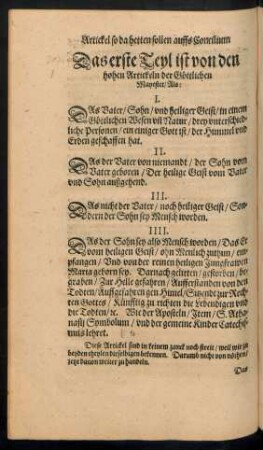 Artickel so da hetten sollen auffs Concilium
Das erste Teyl ist von den
hohen Artickeln der Göttlichen
Mayestet / Als:
I.
DAs Vater / Sohn / vnd heiliger Geist / in einem
Göttlichen Wesen vñ Natur / drey vnterschied-
liche Personen / ein einiger Gott ist / der Himmel vnd
Erden geschaffen hat.
II.
DAs der Vater von niemandt / der Sohn vom
Vater geboren / Der heilige Geist vom Vater
vnd Sohn außgehend.
III.
DAs nicht der Vater / noch heiliger Geist / Son-
dern der Sohn sey Mensch worden.
IIII.
DAs der Sohn sey also Mensch worden / Das Er
vom heiligen Geist / ohn Menlich zuthun / em-
pfangen / Vnd von der reinen heiligen Jungfrawen
Maria geborn sey. Darnach gelitten / gestorben / be-
graben / Zur Helle gefahren / Aufferstanden von den
Todten / Auffgefahren gen Himel / Sitzendt zur Rech-
ten Gottes / Künfftig zu richten die Lebendigen vnd
die Todten / ꝛc. Wie der Aposteln / Item / S. Atha-
nasij Symbolum / vnd der gemeine Kinder Catechis-
mus lehret.
Diese Artickel sind in keinem zanck noch streit / weil wir zu
beyden theylen dieselbigen bekennen. Darumb nicht von nöthen /
jetzt dauon weiter zu handeln.
Das